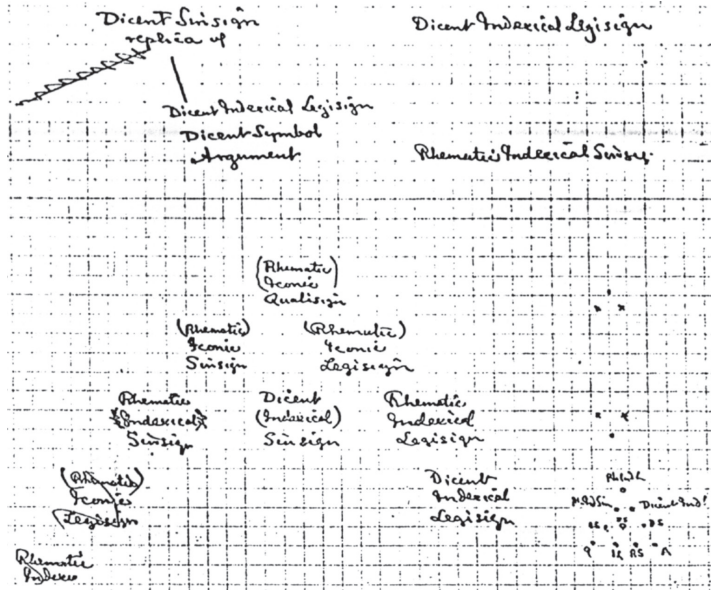 Dicent Sinsign
replica of
Dicent Indexical Legisign
Dicent Symbol
Argument
Dicent Indexical Legisign
Rhematic Indexical Sinsig
(Rhematic)
Iconic
Qualisign
(Rhematic)
Iconic
Sinsign
(Rhematic)
Iconic
Legisign
Rhematic
(Indexical)
Sinsign
Dicent
(Indexical)
Sinsign
Rhematic
Indexical
Legisign
(Rhematic)
Iconic
(Legisign
Dicent
Indexical
Legisign
Rhematic
Indexic
Dicent Ind
DS
RS